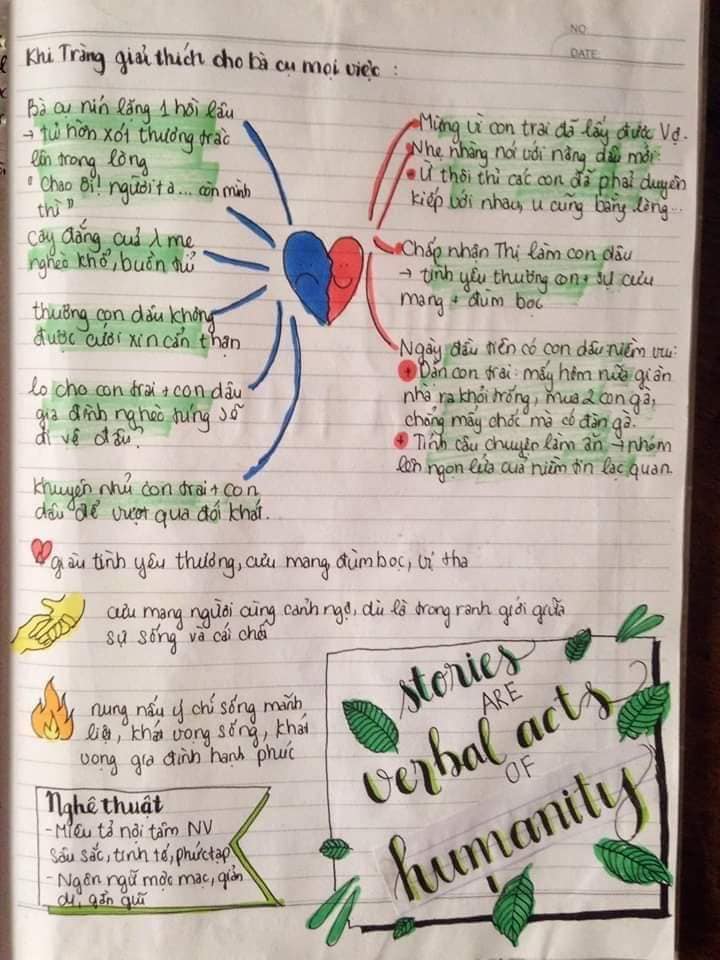 NO
DATE:
Khi Tràng giải thích cho bà cụ mọi việc :
Bà cụ nín lặng 1 hồi lâu
→ tủi hờn xót thương trào
lên trong lòng
"Chao ôi! người ta... còn mình
thì"
Cay đắng của 1 mẹ
nghèo khổ, buồn tủi
thương con dâu không
được cưới xin cẩn thận
lo cho con trai + con dâu
gia đình nghèo túng sẽ
đi về đâu?
khuyên nhủ con trai + con
dâu để vượt qua đói khát.
Mừng vì con trai đã lấy được Vợ.
Nhẹ nhàng nói với nàng dâu mới:
Ừ thôi thì các con đã phải duyên
kiếp với nhau, u cũng bằng lòng...
Chấp nhận Thị làm con dâu
→ tình yêu thương con + sự cưu
mang + đùm bọc
Ngày đầu tiên có con dâu niềm vui:
+ Dặn con trai: mấy hôm nữa giăn
nhà ra khỏi trống, mua 2 con gà,
chẳng mấy chốc mà có đàn gà.
+ Tính câu chuyện làm ăn → nhóm
lên ngọn lửa của niềm tin lạc quan.
giàu tình yêu thương, cưu mang, đùm bọc, vị tha
cưu mang người cùng cảnh ngộ, dù là trong ranh giới giữa
sự sống và cái chết
nung nấu ý chí sống mãnh
liệt, khát vọng sống, khát
vọng gia đình hạnh phúc
Nghệ thuật
- Miêu tả nội tâm NV
sâu sắc, tinh tế, phức tạp
- Ngôn ngữ mộc mạc, giản
dị, gần gũi
stories
ARE
verbal acts
OF
humanity